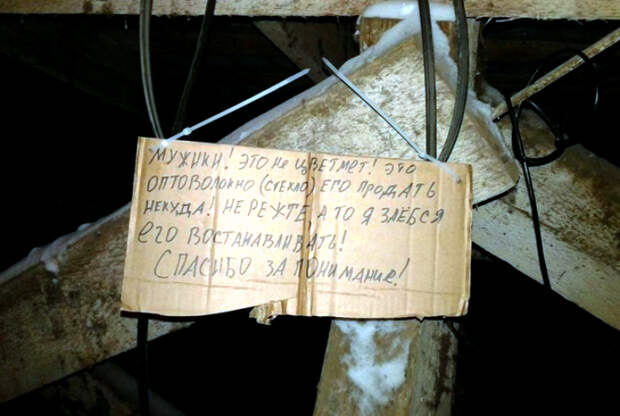 МУЖИКИ! ЭТО не ЦВЕТМЕТ! ЭТО
ОПТОВОЛОКНО (СТЕКЛО) ЕГО ПРОДАТЬ
НЕКУДА! НЕ РЕЖТЕ, А ТО Я ЗАЁБСЯ
ЕГО ВОСТАНАВЛИВАТЬ!
СПАСИБО ЗА ПОНИМАНИЕ!